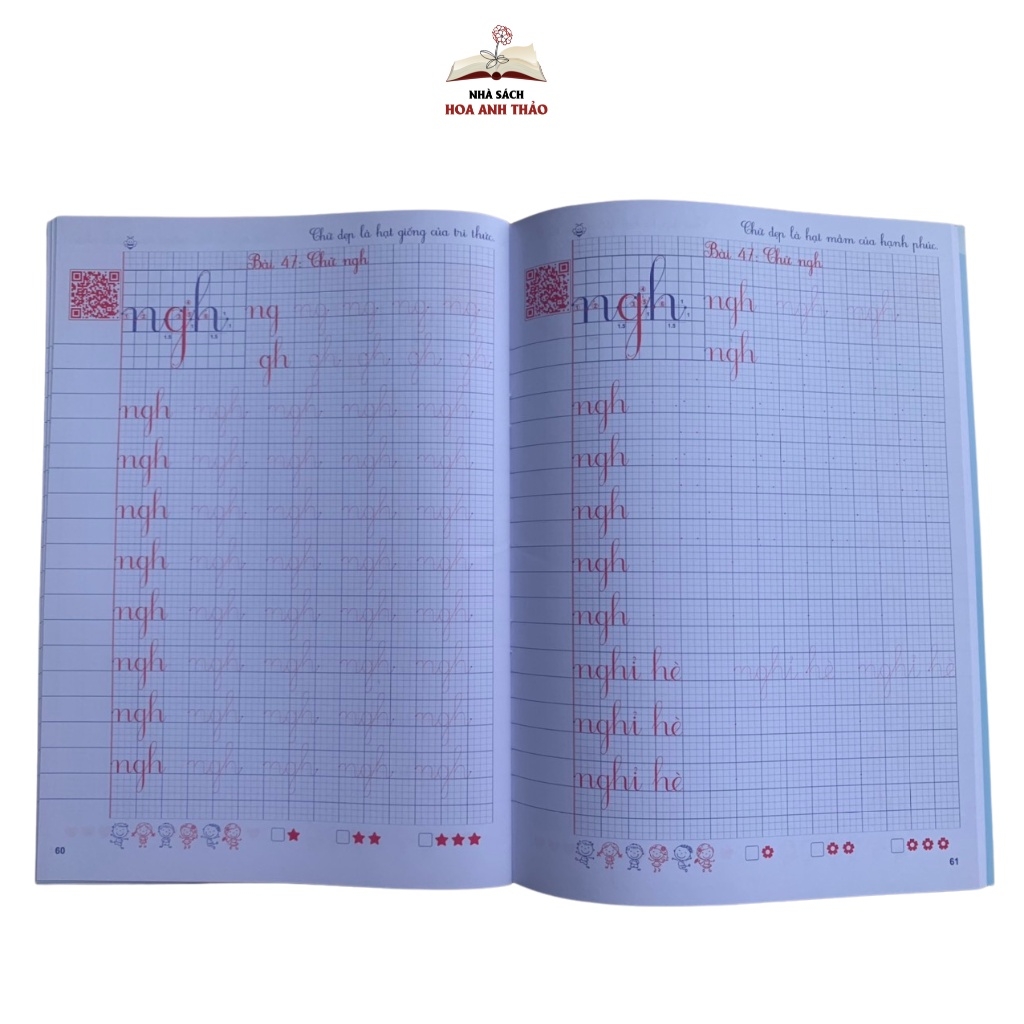 NHÀ SÁCH
HOA ANH THẢO
Chữ đẹp là hạt giống của tri thức.
Bài 47: Chữ ngh
ngh ng ng ng ng ng ng
1,5 1,5
gh gh gh gh gh gh
ngh ngh ngh ngh ngh
ngh ngh ngh ngh ngh
ngh ngh ngh ngh ngh
ngh ngh ngh ngh ngh
ngh ngh ngh ngh ngh
ngh ngh ngh ngh ngh
ngh ngh ngh ngh ngh
ngh ngh ngh ngh ngh
60
Chữ đẹp là hạt mầm của hạnh phúc.
Bài 47: Chữ ngh
ngh ngh ngh ngh ngh
1,5 1,5
ngh
ngh
ngh
ngh
ngh
ngh
nghỉ hè nghỉ hè nghỉ hè
nghỉ hè
nghỉ hè
61